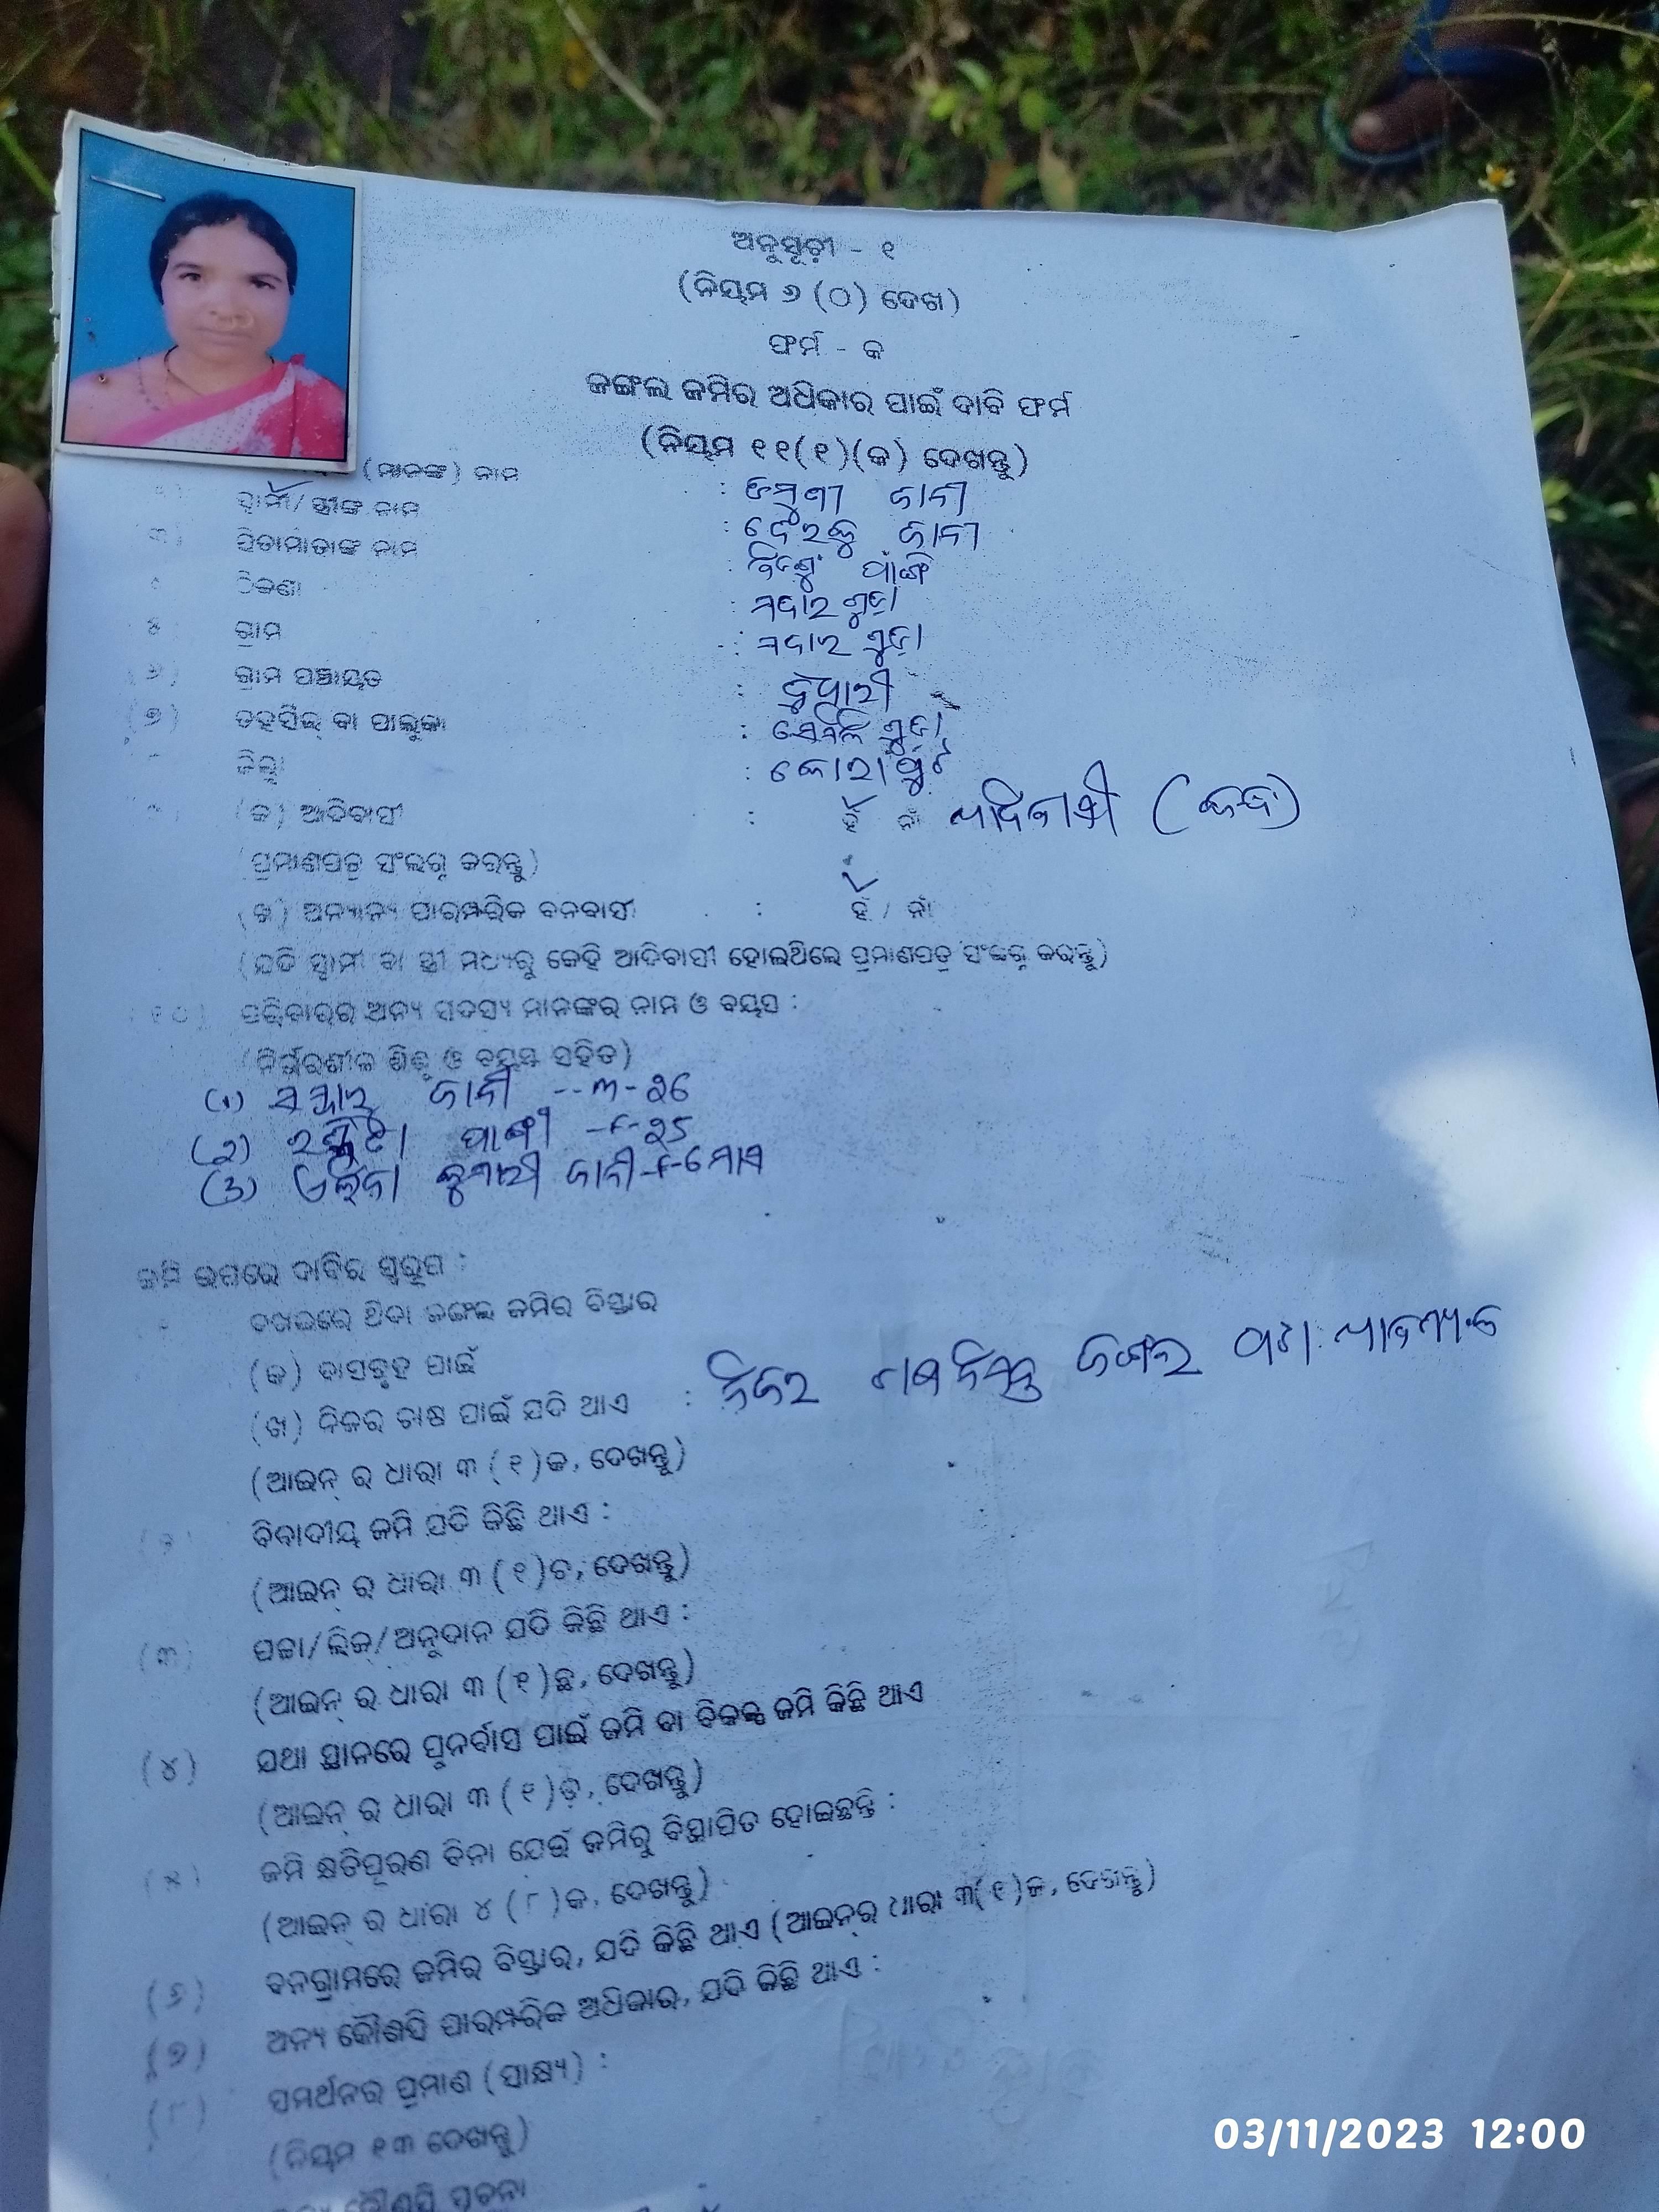 ଅନୁସୂଚୀ - ୧
(ନିୟମ ୬ (୦) ଦେଖ)
ଫର୍ମ - କ
ଜଙ୍ଗଲ ଜମିର ଅଧିକାର ପାଇଁ ଦାବି ଫର୍ମ
(ନିୟମ ୧୧(୧)(କ) ଦେଖନ୍ତୁ)
(ମାନଙ୍କ) ନାମ : ଜାନୀ
ସ୍ୱାମୀ/ସ୍ତ୍ରୀଙ୍କ ନାମ : ଜାନୀ
ପିତାମାତାଙ୍କ ନାମ :
ଠିକଣା :
ଗ୍ରାମ :
(୬) ଗ୍ରାମ ପଞ୍ଚାୟତ :
(୭) ତହସିଲ୍ ବା ତାଲୁକା :
ଜିଲ୍ଲା : କୋରାପୁଟ
(କ) ଆଦିବାସୀ : ହଁ ନାଁ ଆଦିବାସୀ
(ପ୍ରମାଣପତ୍ର ସଂଲଗ୍ନ କରନ୍ତୁ)
(ଖ) ଅନ୍ୟାନ୍ୟ ପାରମ୍ପରିକ ବନବାସୀ : ହଁ / ନାଁ
(ଯଦି ସ୍ୱାମୀ ବା ସ୍ତ୍ରୀ ମଧ୍ୟରୁ କେହି ଆଦିବାସୀ ହୋଇଥିଲେ ପ୍ରମାଣପତ୍ର ସଂଲଗ୍ନ କରନ୍ତୁ)
(୧୦) ପରିବାରର ଅନ୍ୟ ସଦସ୍ୟ ମାନଙ୍କର ନାମ ଓ ବୟସ :
(ନିର୍ଭରଶୀଳ ଶିଶୁ ଓ ବୟସ୍କ ସହିତ)
(୧) ଜାନୀ -- m - ୨୬
(୨) - F - ୨୫
(୩) କୁମାରୀ ଜାନୀ - F -
ଜମି ଉପରେ ଦାବିର ସ୍ୱରୂପ :
ଦଖଲରେ ଥିବା ଜଙ୍ଗଲ ଜମିର ବିସ୍ତାର
(କ) ବାସଗୃହ ପାଇଁ
(ଖ) ନିଜର ଚାଷ ପାଇଁ ଯଦି ଥାଏ : ନିଜର ଜଙ୍ଗଲ ପଟା ଆବଶ୍ୟକ
(ଆଇନ୍ ର ଧାରା ୩ (୧)କ, ଦେଖନ୍ତୁ)
ବିବାଦୀୟ ଜମି ଯଦି କିଛି ଥାଏ :
(ଆଇନ୍ ର ଧାରା ୩ (୧)ଚ, ଦେଖନ୍ତୁ)
(୩) ପଟ୍ଟା/ଲିଜ୍/ଅନୁଦାନ ଯଦି କିଛି ଥାଏ :
(ଆଇନ୍ ର ଧାରା ୩ (୧)ଛ, ଦେଖନ୍ତୁ)
(୪) ଯଥା ସ୍ଥାନରେ ପୁନର୍ବାସ ପାଇଁ ଜମି ବା ବିକଳ୍ପ ଜମି କିଛି ଥାଏ
(ଆଇନ୍ ର ଧାରା ୩ (୧)ଡ଼, ଦେଖନ୍ତୁ)
(୫) ଜମି କ୍ଷତିପୂରଣ ବିନା ଯେଉଁ ଜମିରୁ ବିସ୍ଥାପିତ ହୋଇଛନ୍ତି :
(ଆଇନ୍ ର ଧାରା ୪ (୮)କ, ଦେଖନ୍ତୁ)
(୬) ବନଗ୍ରାମରେ ଜମିର ବିସ୍ତାର, ଯଦି କିଛି ଥାଏ (ଆଇନ୍‌ର ଧାରା ୩(୧)ଜ, ଦେଖନ୍ତୁ)
(୭) ଅନ୍ୟ କୌଣସି ପାରମ୍ପରିକ ଅଧିକାର, ଯଦି କିଛି ଥାଏ :
(୮) ସମର୍ଥନର ପ୍ରମାଣ (ସାକ୍ଷ୍ୟ) :
(ନିୟମ ୧୩ ଦେଖନ୍ତୁ)
କୌଣସି ସୂଚନା
03/11/2023 12:00